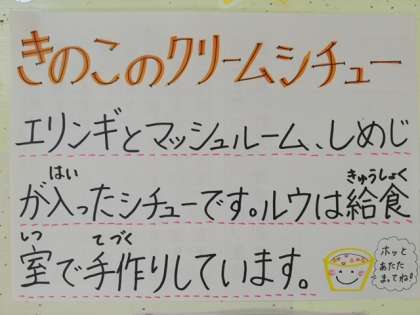 きのこのクリームシチュー
エリンギとマッシュルーム、しめじ
はい
きゅうしょく
が入ったシチューです。ルウは給食
しつ
てづく
室で手作りしています。
ホッと
あたた
まってね!